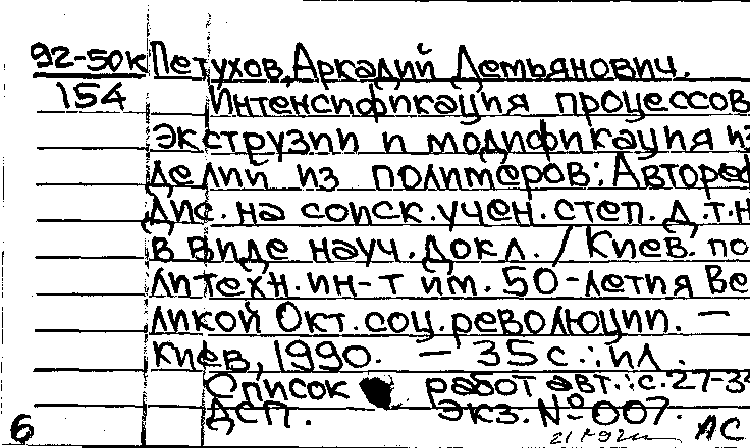 92-50к Петухов, Аркадий Демьянович.
154 Интенсификация процессов
экструзии и модификация из
делий из полимеров: Автореф
дис. на соиск. учен. степ. д.т.н
в виде науч. докл. / Киев. по
литехн. ин-т им. 50-летия Ве
ликой Окт. соц. революции. —
Киев, 1990. — 35 с.: ил.
Список работ авт.: с. 27-3
ДСП. Экз. № 007.
6 АС